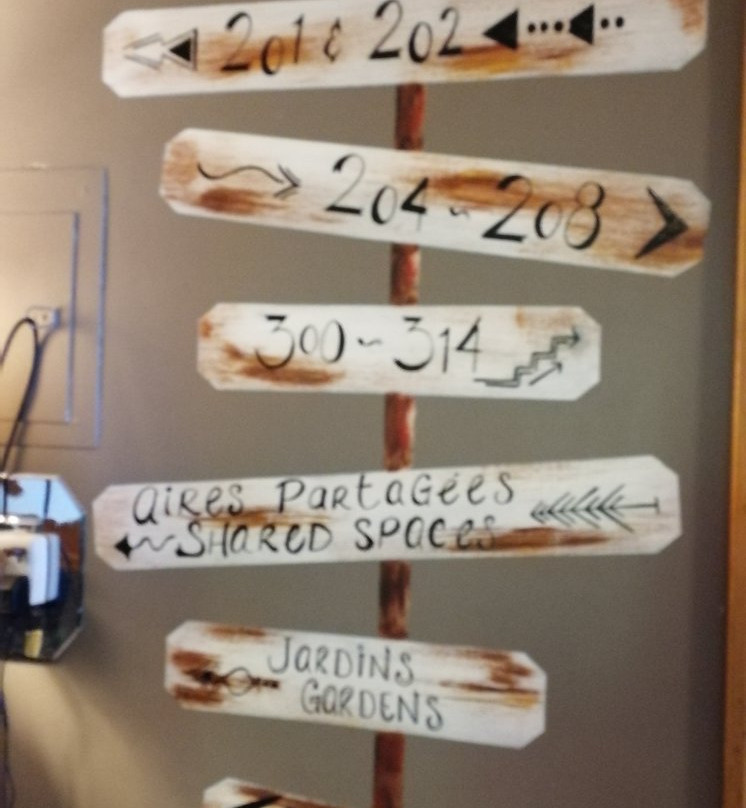 201 & 202
204 ~ 208
300 ~ 314
aires Partagées
SHARED SPACes
JARDINS
GARDENS